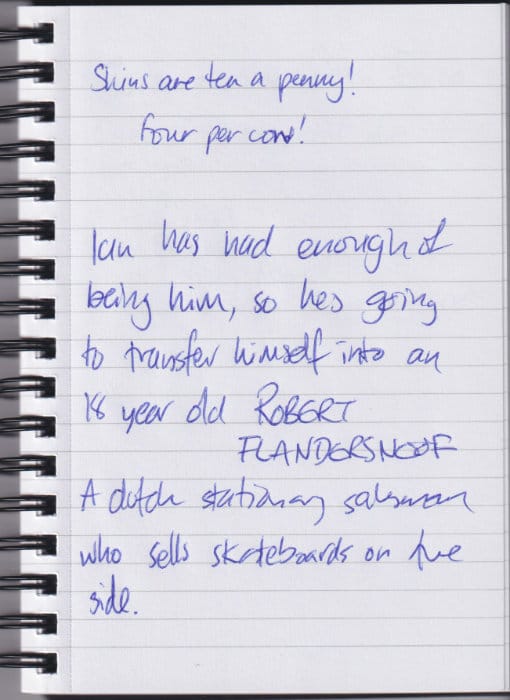 Shins are ten a penny!
Four per cow!
Ian has had enough of
being him, so hes going
to transfer himself into an
18 year old ROBERT
FLANDERSNOOF
A dutch stationary salesman
who sells skateboards on the
side.